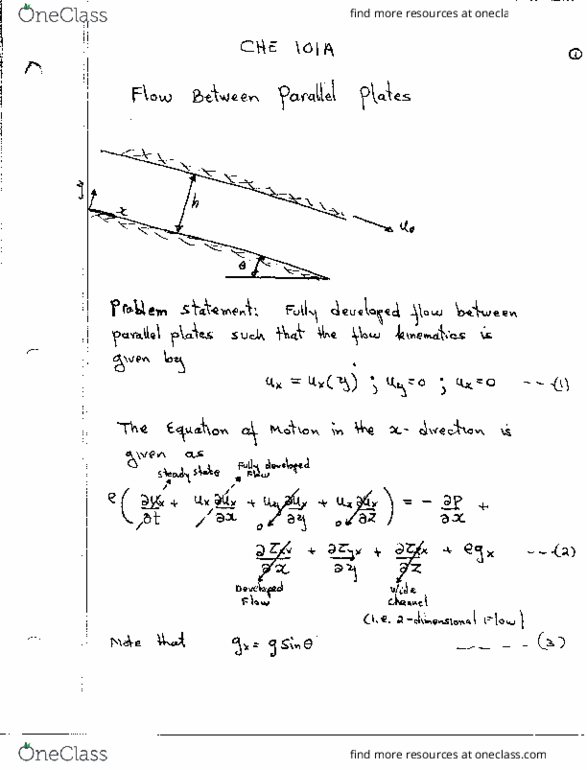 OneClass
find more resources at onecla
CHE 101A
1
Flow Between Parallel Plates
y
x
h
u₀
θ
Problem statement: Fully developed flow between
parallel plates such that the flow kinematics is
given by
uₓ = uₓ(y) ; u_y = 0 ; u_z = 0 --- (1)
The Equation of Motion in the x- direction is
given as
steady state Fully developed Flow
ρ( ∂uₓ/∂t + uₓ ∂uₓ/∂x + u_y ∂uₓ/∂y + u_z ∂uₓ/∂z ) = - ∂P/∂x +
0 0
∂τₓₓ/∂x + ∂τ_yx/∂y + ∂τ_zx/∂z + ρgₓ --- (2)
Developed Flow
Wide Channel
(i.e. 2-dimensional Flow)
Note that gₓ = g sinθ ---- (3)
OneClass
find more resources at oneclass.com